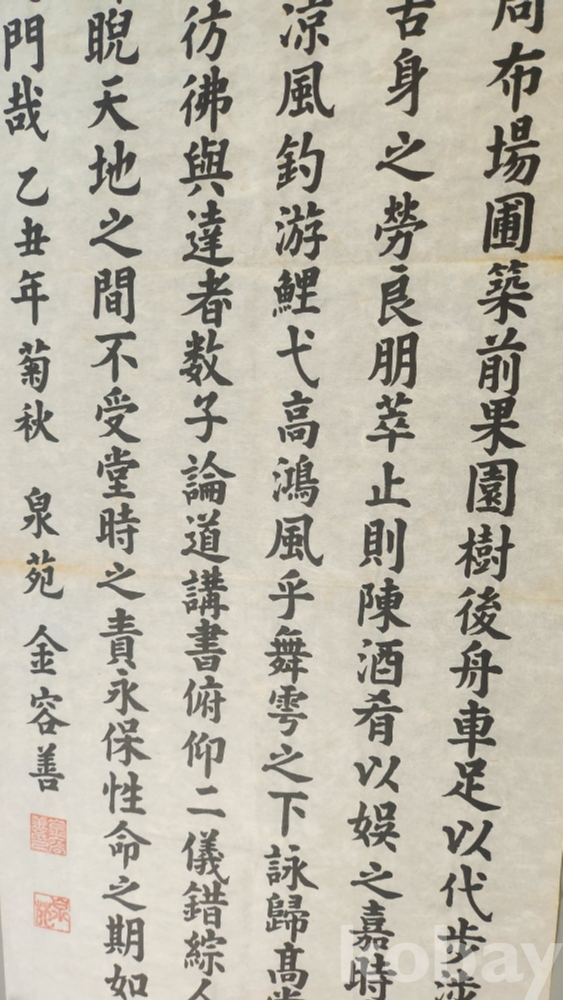 周布場圃築前果園樹後舟車足以代步涉
身之勞良朋萃止則陳酒肴以娛之嘉時
凉風釣游鯉弋高鴻風乎舞雩之下詠歸高堂
彷彿與達者数子論道講書俯仰二儀錯綜人
睨天地之間不受堂時之責永保性命之期如
門哉 乙丑年菊秋 泉苑 金容善
kobay